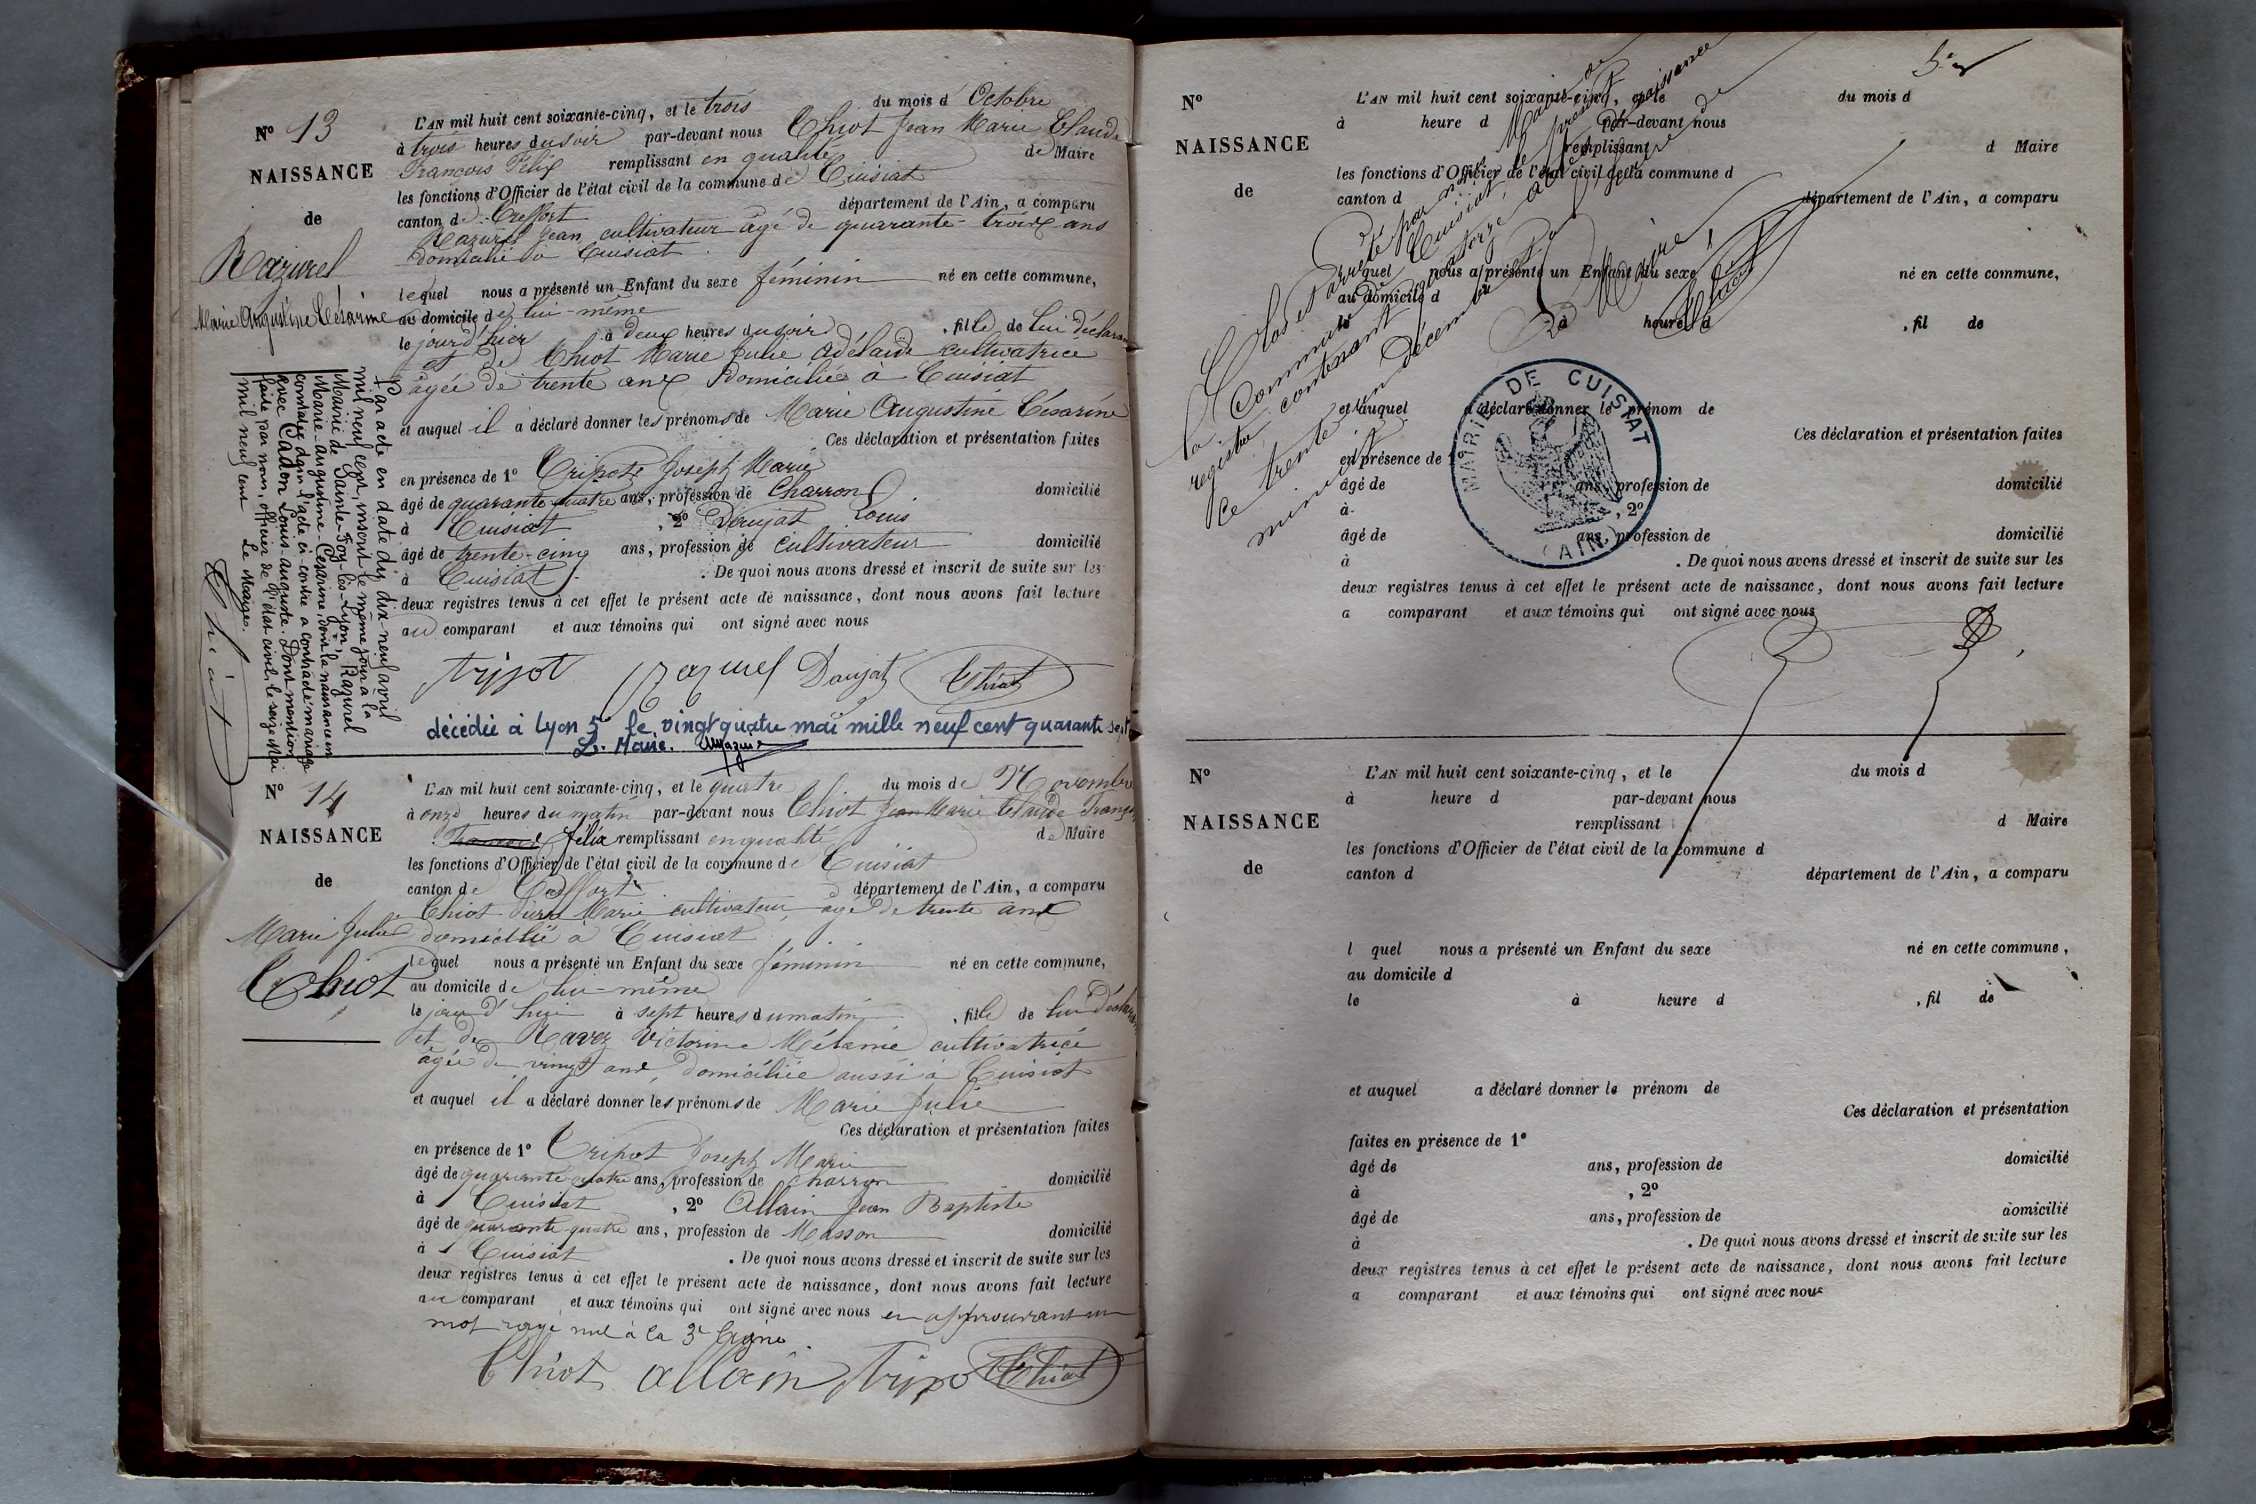 N° 13
NAISSANCE
de
Razurel
Marie Augustine Césarine
L'AN mil huit cent soixante-cinq, et le trois du mois d Octobre
à trois heures du soir par-devant nous Chiot Jean Marie Claude
François Félix remplissant en qualité de Maire
les fonctions d'Officier de l'état civil de la commune de Cuisiat
canton de Treffort département de l'Ain, a comparu
Razurel Jean cultivateur âgé de quarante-trois ans
domicilié à Cuisiat
lequel nous a présenté un Enfant du sexe féminin né en cette commune,
au domicile de lui-même
le jour d'hier à deux heures du soir, fille de lui déclarant
et de Chiot Marie Julie Adélaïde cultivatrice
âgée de trente ans domiciliée à Cuisiat
et auquel il a déclaré donner les prénoms de Marie Augustine Césarine
Ces déclaration et présentation faites
en présence de 1° Tripoz Joseph Marie
âgé de quarante quatre ans, profession de Charron domicilié
à Cuisiat, 2° Doujat Louis
âgé de trente-cinq ans, profession de cultivateur domicilié
à Cuisiat. De quoi nous avons dressé et inscrit de suite sur les
deux registres tenus à cet effet le présent acte de naissance, dont nous avons fait lecture
au comparant et aux témoins qui ont signé avec nous
tripot Razurel Doujat Chiot
décédée à Lyon 5e le vingt quatre mai mille neuf cent quarante sept
Le Maire.
Par acte en date du dix-neuf avril
mil neuf cent, inscrit le même jour à la
Mairie de Sainte-Foy-lès-Lyon, Razurel
Marie-Augustine-Césarine, dont la naissance est
constatée dans l'acte ci-contre a contracté mariage
avec Cadon Louis-Auguste. Dont mention
faite par nous, officier de l'état civil, le seize Mai
mil neuf cent Le Maire.
Chiot
N° 14
NAISSANCE
de
Marie Julie
Chiot
L'AN mil huit cent soixante-cinq, et le quatre du mois de Novembre
à onze heures du matin par-devant nous Chiot Jean Marie Claude François
François Félix remplissant en qualité de Maire
les fonctions d'Officier de l'état civil de la commune de Cuisiat
canton de Treffort département de l'Ain, a comparu
Chiot Pierre Marie cultivateur, âgé de trente ans
domicilié à Cuisiat
lequel nous a présenté un Enfant du sexe féminin né en cette commune,
au domicile de lui-même
le jour d'hier à sept heures du matin, fille de lui déclarant
et de Ravez Victorine Mélanie cultivatrice
âgée de vingt ans, domiciliée aussi à Cuisiat
et auquel il a déclaré donner les prénoms de Marie Julie
Ces déclaration et présentation faites
en présence de 1° Tripot Joseph Marie
âgé de quarante quatre ans, profession de Charron domicilié
à Cuisiat, 2° Allain Jean Baptiste
âgé de quarante quatre ans, profession de Masson domicilié
à Cuisiat. De quoi nous avons dressé et inscrit de suite sur les
deux registres tenus à cet effet le présent acte de naissance, dont nous avons fait lecture
au comparant et aux témoins qui ont signé avec nous en approuvant un
mot rayé nul à la 3e ligne
Chiot allain tripo Chiot
N°
NAISSANCE
de
L'AN mil huit cent soixante-cinq, et le du mois d
à heure d par-devant nous
remplissant d Maire
les fonctions d'Officier de l'état civil de la commune d
canton d département de l'Ain, a comparu
l quel nous a présenté un Enfant du sexe né en cette commune,
au domicile d
le à heure d, fil de
et auquel a déclaré donner le prénom de
Ces déclaration et présentation faites
en présence de 1°
âgé de ans, profession de domicilié
à, 2°
âgé de ans, profession de domicilié
à. De quoi nous avons dressé et inscrit de suite sur les
deux registres tenus à cet effet le présent acte de naissance, dont nous avons fait lecture
a comparant et aux témoins qui ont signé avec nous
Clos et arrêté par nous Maire de
la Commune de Cuisiat, le présent
registre contenant quatorze actes de naissance
ce trente un décembre
minuit
Le Maire,
Chiot
MAIRIE DE CUISIAT
(AIN)
N°
NAISSANCE
de
L'AN mil huit cent soixante-cinq, et le du mois d
à heure d par-devant nous
remplissant d Maire
les fonctions d'Officier de l'état civil de la commune d
canton d département de l'Ain, a comparu
l quel nous a présenté un Enfant du sexe né en cette commune,
au domicile d
le à heure d, fil de
et auquel a déclaré donner le prénom de
Ces déclaration et présentation
faites en présence de 1°
âgé de ans, profession de domicilié
à, 2°
âgé de ans, profession de domicilié
à. De quoi nous avons dressé et inscrit de suite sur les
deux registres tenus à cet effet le présent acte de naissance, dont nous avons fait lecture
a comparant et aux témoins qui ont signé avec nous